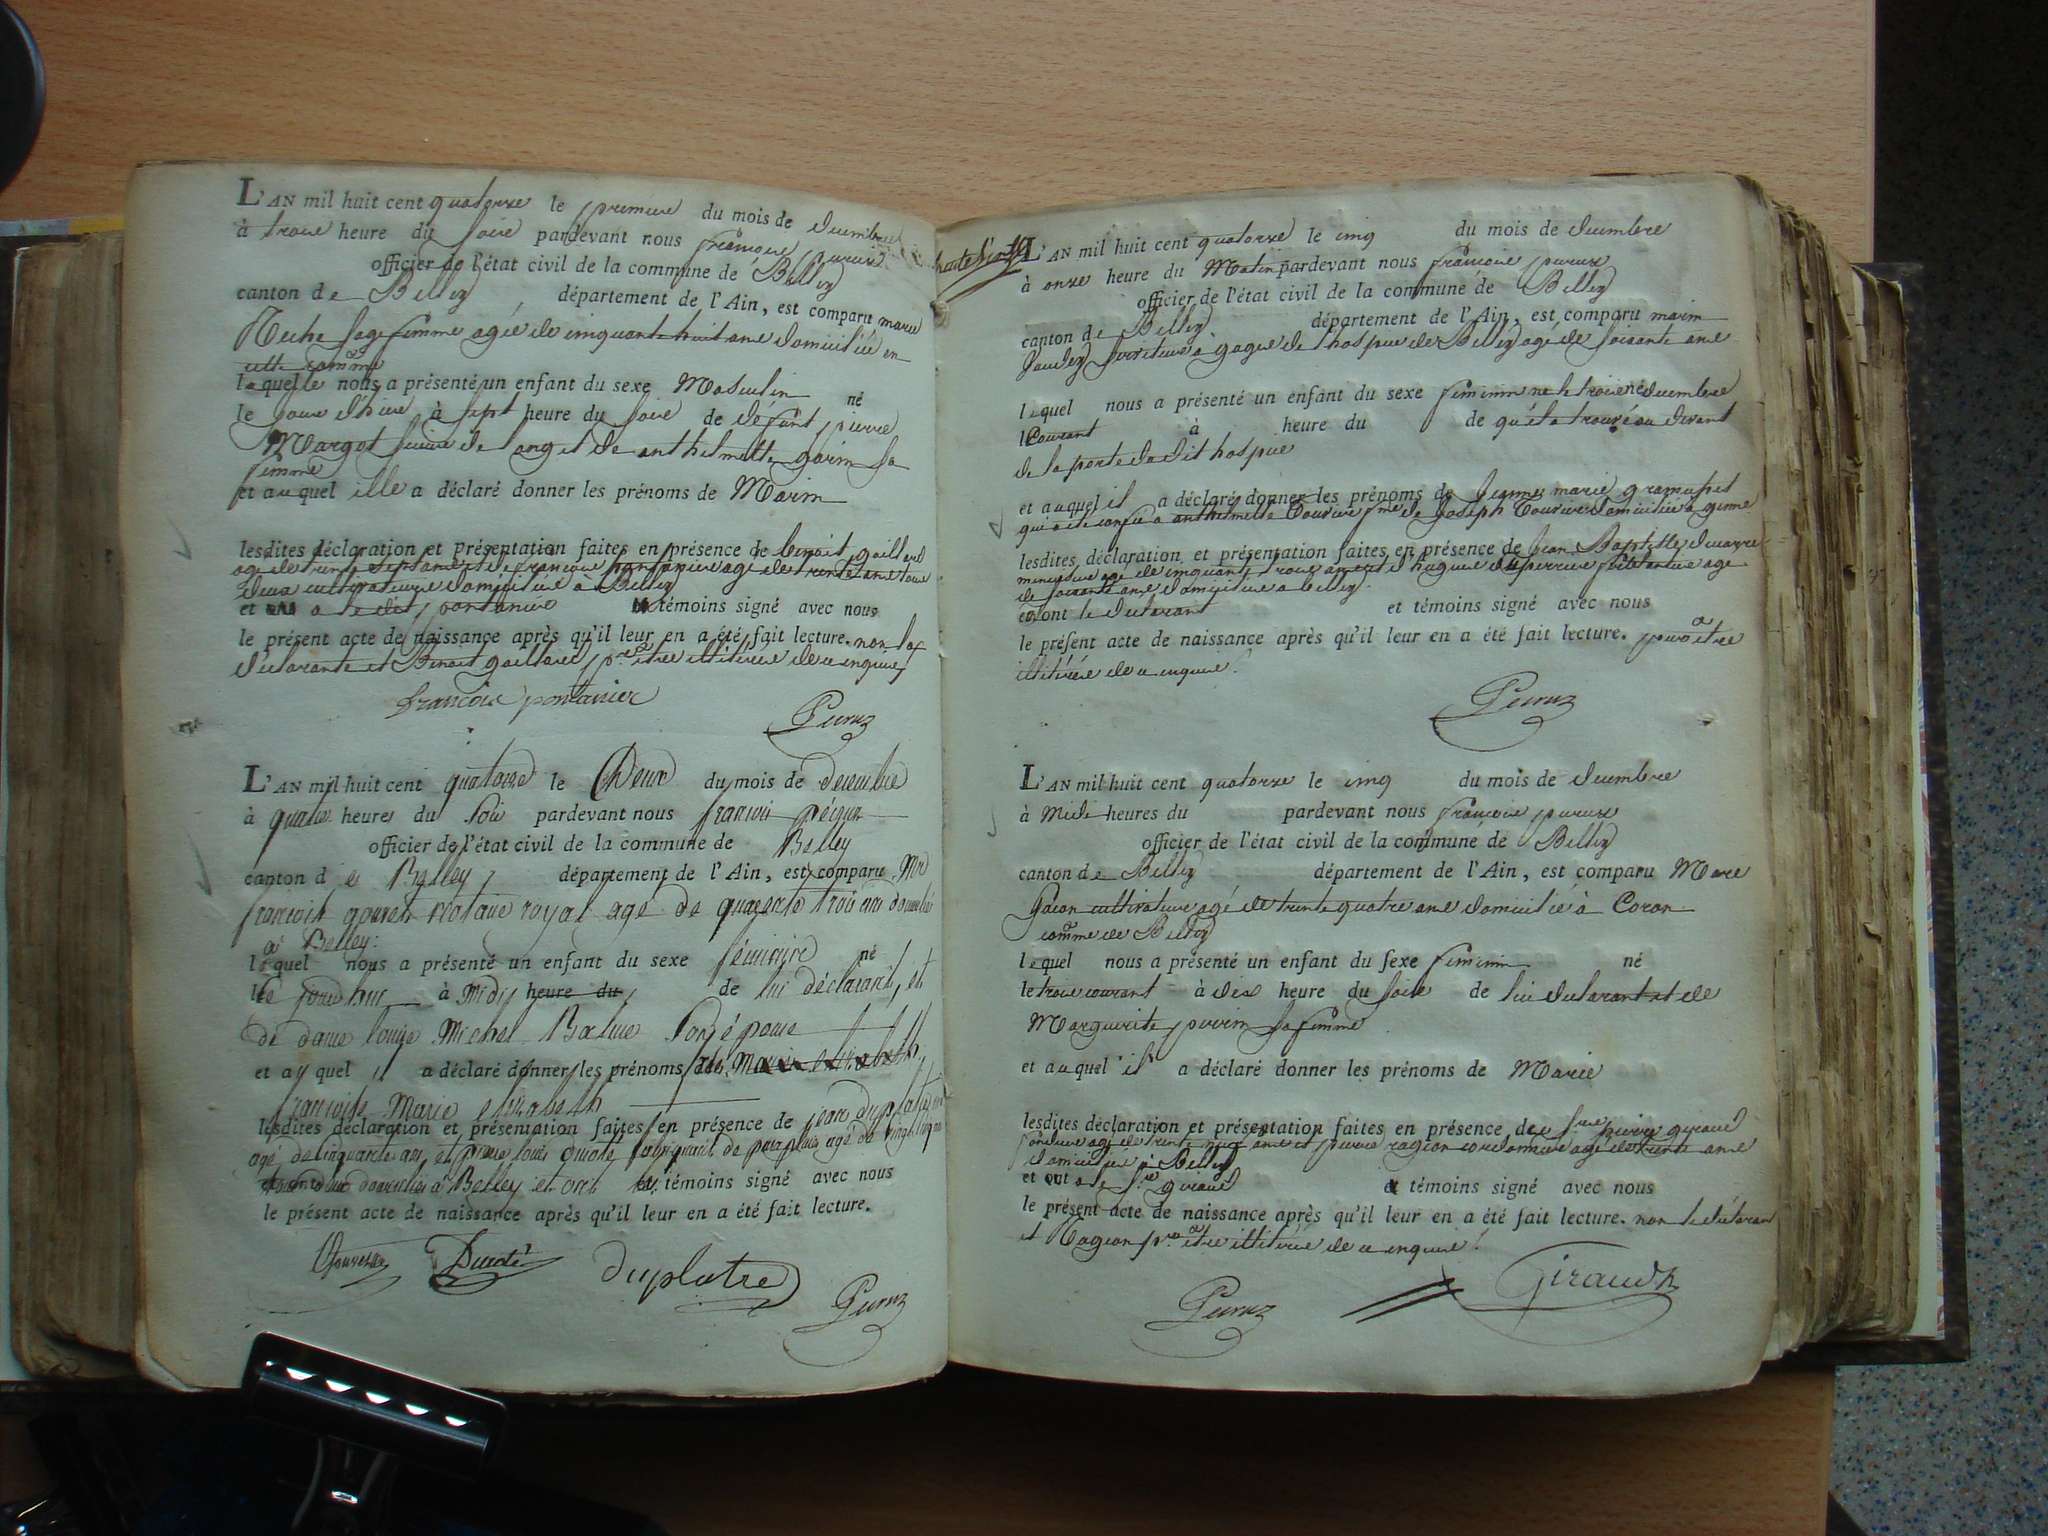 L'AN mil huit cent quatorze le premier du mois de decembre
à trois heure du soire pardevant nous françois peruz
officier de l'état civil de la commune de Belley
canton de Belley, département de l'Ain, est comparu marie
sage femme agée de cinquante huit ans domiciliée en
cette comme
laquelle nous a présenté un enfant du sexe Masculin né
le jour d'hier à sept heure du soire de défunt pierre
Margot de son et de anthelmette gavin sa
femme
et auquel elle a déclaré donner les prénoms de Marin
lesdites déclaration et présentation faites en présence de benoit gaillard
agé de trente sept ans et de françois pontanier agé de trente ans tous
deux cultivateurs domiciliés à Belley
et a le dit pontanier témoins signé avec nous
le présent acte de naissance après qu'il leur en a été fait lecture. non la
declarante et Benoit gaillard pr être illitérés de ce enquis
françois pontanier
Peruz
L'AN mil huit cent quatorze le Deux du mois de decembre
à quatre heures du Soir pardevant nous françois péruz
officier de l'état civil de la commune de Belley
canton de Belley, département de l'Ain, est comparu Mr
françois notaire royal agé de quarante trois ans domicilié
à Belley.
lequel nous a présenté un enfant du sexe féminin né
ce jourd'hui à Midy heure du de lui déclarant, et
de dame louise Michel Balme son épouse
et auquel il a déclaré donner les prénoms de Marie elisabeth
françoise Marie elisabeth
lesdites déclaration et présentation faites en présence de jean duplatre
agé de cinquante ans, et pierre louis fabriquant de parapluie agé de vingt cinq ans
tous deux domiciliés à Belley et ont témoins signé avec nous
le présent acte de naissance après qu'il leur en a été fait lecture.
duplatre
Peruz
L'AN mil huit cent quatorze le cinq du mois de decembre
à onze heure du Matin pardevant nous françois peruz
officier de l'état civil de la commune de Belley
canton de Belley département de l'Ain, est comparu marin
serviteur à gages de l'hospice de Belley agé de soisante ans
lequel nous a présenté un enfant du sexe feminin né le trois decembre
courant à heure du de qu'il a trouvé au devant
de la porte dudit hospice
et auquel il a déclaré donner les prénoms de jeanne marie
qui a été confié à anthelmette fme de Joseph domicilié à
lesdites déclaration et présentation faites en présence de Jean Baptiste
agé de cinquante trois ans et d'hugues agé
de soisante ans domiciliés à belley
et ont le declarant et témoins signé avec nous
le présent acte de naissance après qu'il leur en a été fait lecture. pour être
illitérés de ce enquis.
Peruz
L'AN mil huit cent quatorze le cinq du mois de decembre
à Midi heures du pardevant nous françois peruz
officier de l'état civil de la commune de Belley
canton de Belley département de l'Ain, est comparu Marc
cultivateur agé de trente quatre ans domicilié à Coron
comme de Belley
lequel nous a présenté un enfant du sexe feminin né
le trois courant à dix heure du soire de lui declarant et de
Marguerite perrin sa femme
et auquel il a déclaré donner les prénoms de Marie
lesdites déclaration et présentation faites en présence de Sieur pierre giraud
agé de trente neuf ans et pierre ragion cordonnier agé de trente ans
domiciliés à Belley
et ont a le Sr giraud témoins signé avec nous
le présent acte de naissance après qu'il leur en a été fait lecture. non le declarant
et Ragion pr être illitérés de ce enquis.
Giraud
Peruz